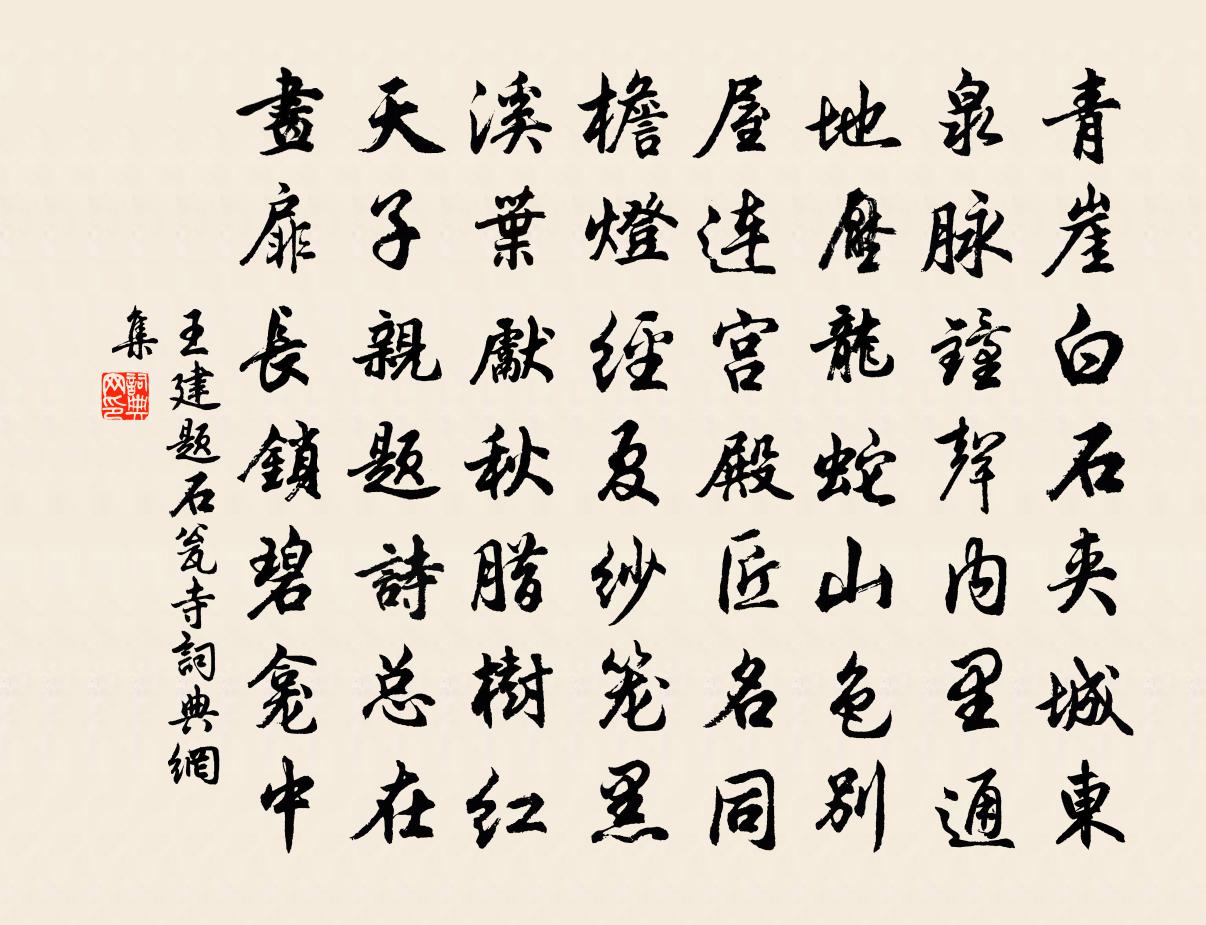 青崖白石夹城東
泉脉鐘聲内里通
地壓龍蛇山色别
屋連宫殿匠名同
檐燈經夏纱笼黑
溪葉獻秋腊樹红
天子親题詩总在
畫扉長鎖碧龛中
王建题石瓮寺詞典網
集
詞典
网印